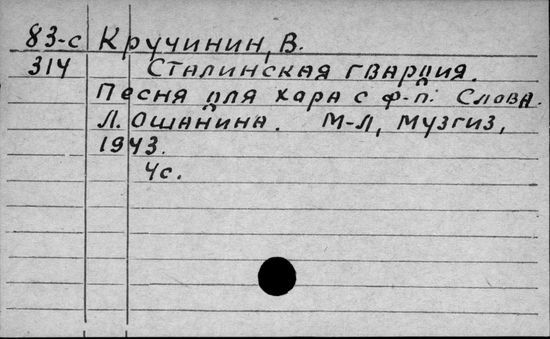 83-с Кручинин, В.
314 Сталинская гвардия.
Песня для хора с ф-п. Слова
Л. Ошанина. М-Л, Музгиз,
1943.
4с.